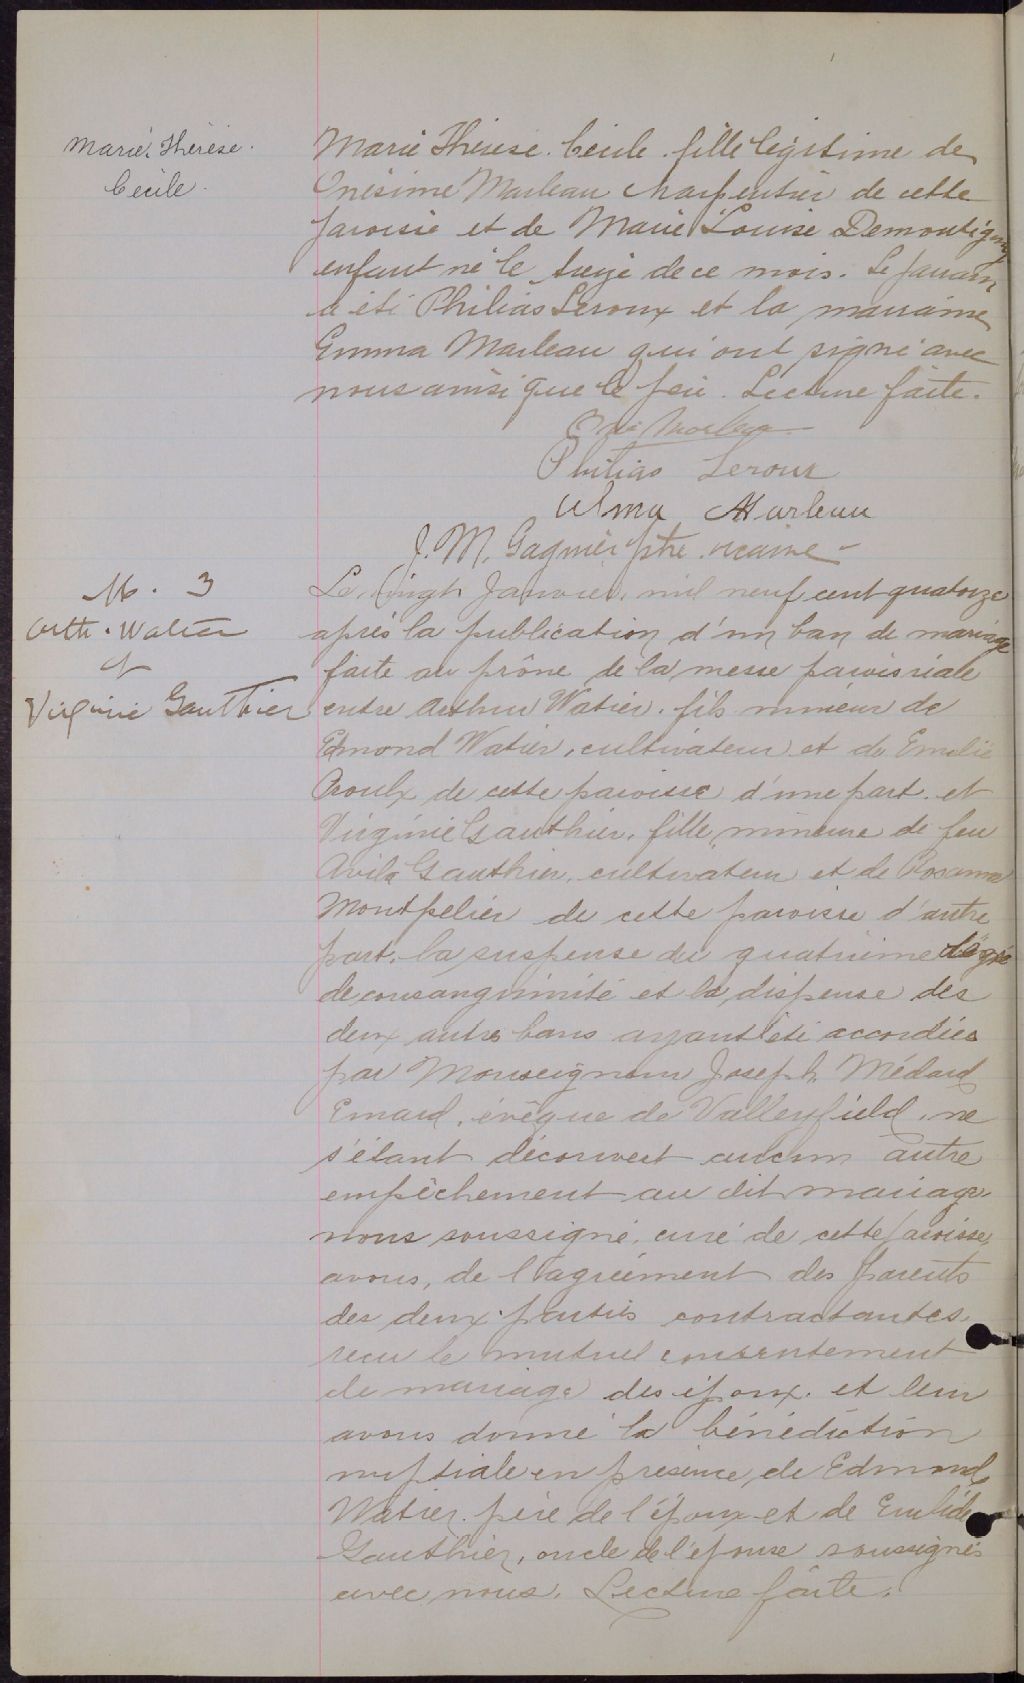 Marie Thérèse.
Cécile.
Marie Thérèse. Cécile. fille légitime de
Onésime Marleau charpentier de cette
paroisse et de Marie Louise Demontigny
enfant né le treize de ce mois. Le parrain
a été Philias Leroux et la marraine
Emma Marleau qui ont signé avec
nous ainsi que le père. Lecture faite.
Marleau
Philias Leroux
Alma Marleau
J. M. Gagnier ptre. vicaire
M. 3
Arth. Watier
et
Virginie Gauthier
Le vingt Janvier, mil neuf cent quatorze
après la publication d'un ban de mariage
faite au prône de la messe paroissiale
entre Arthur Watier. fils mineur de
Edmond Watier, cultivateur et de Emelie
Proulx de cette paroisse d'une part. et
Virginie Gauthier. fille, mineure de feu
Avila Gauthier, cultivateur et de Rosanna
Montpelier de cette paroisse d'autre
part. la suspense du quatrième dégré
de consanguinité et la dispense des
deux autres bans ayant été accordées
par Monseigneur Joseph Médard
Emard, évêque de Valleyfield, ne
s'étant découvert aucun autre
empêchement au dit mariage
nous soussigné, curé de cette paroisse,
avons, de l'agrément des parents
des deux parties contractantes,
reçu le mutuel consentement
de mariage des époux. et leur
avons donné la bénédiction
nuptiale en présence de Edmond
Watier. père de l'époux et de Euclide
Gauthier, oncle de l'épouse soussignés
avec nous. Lecture faite.